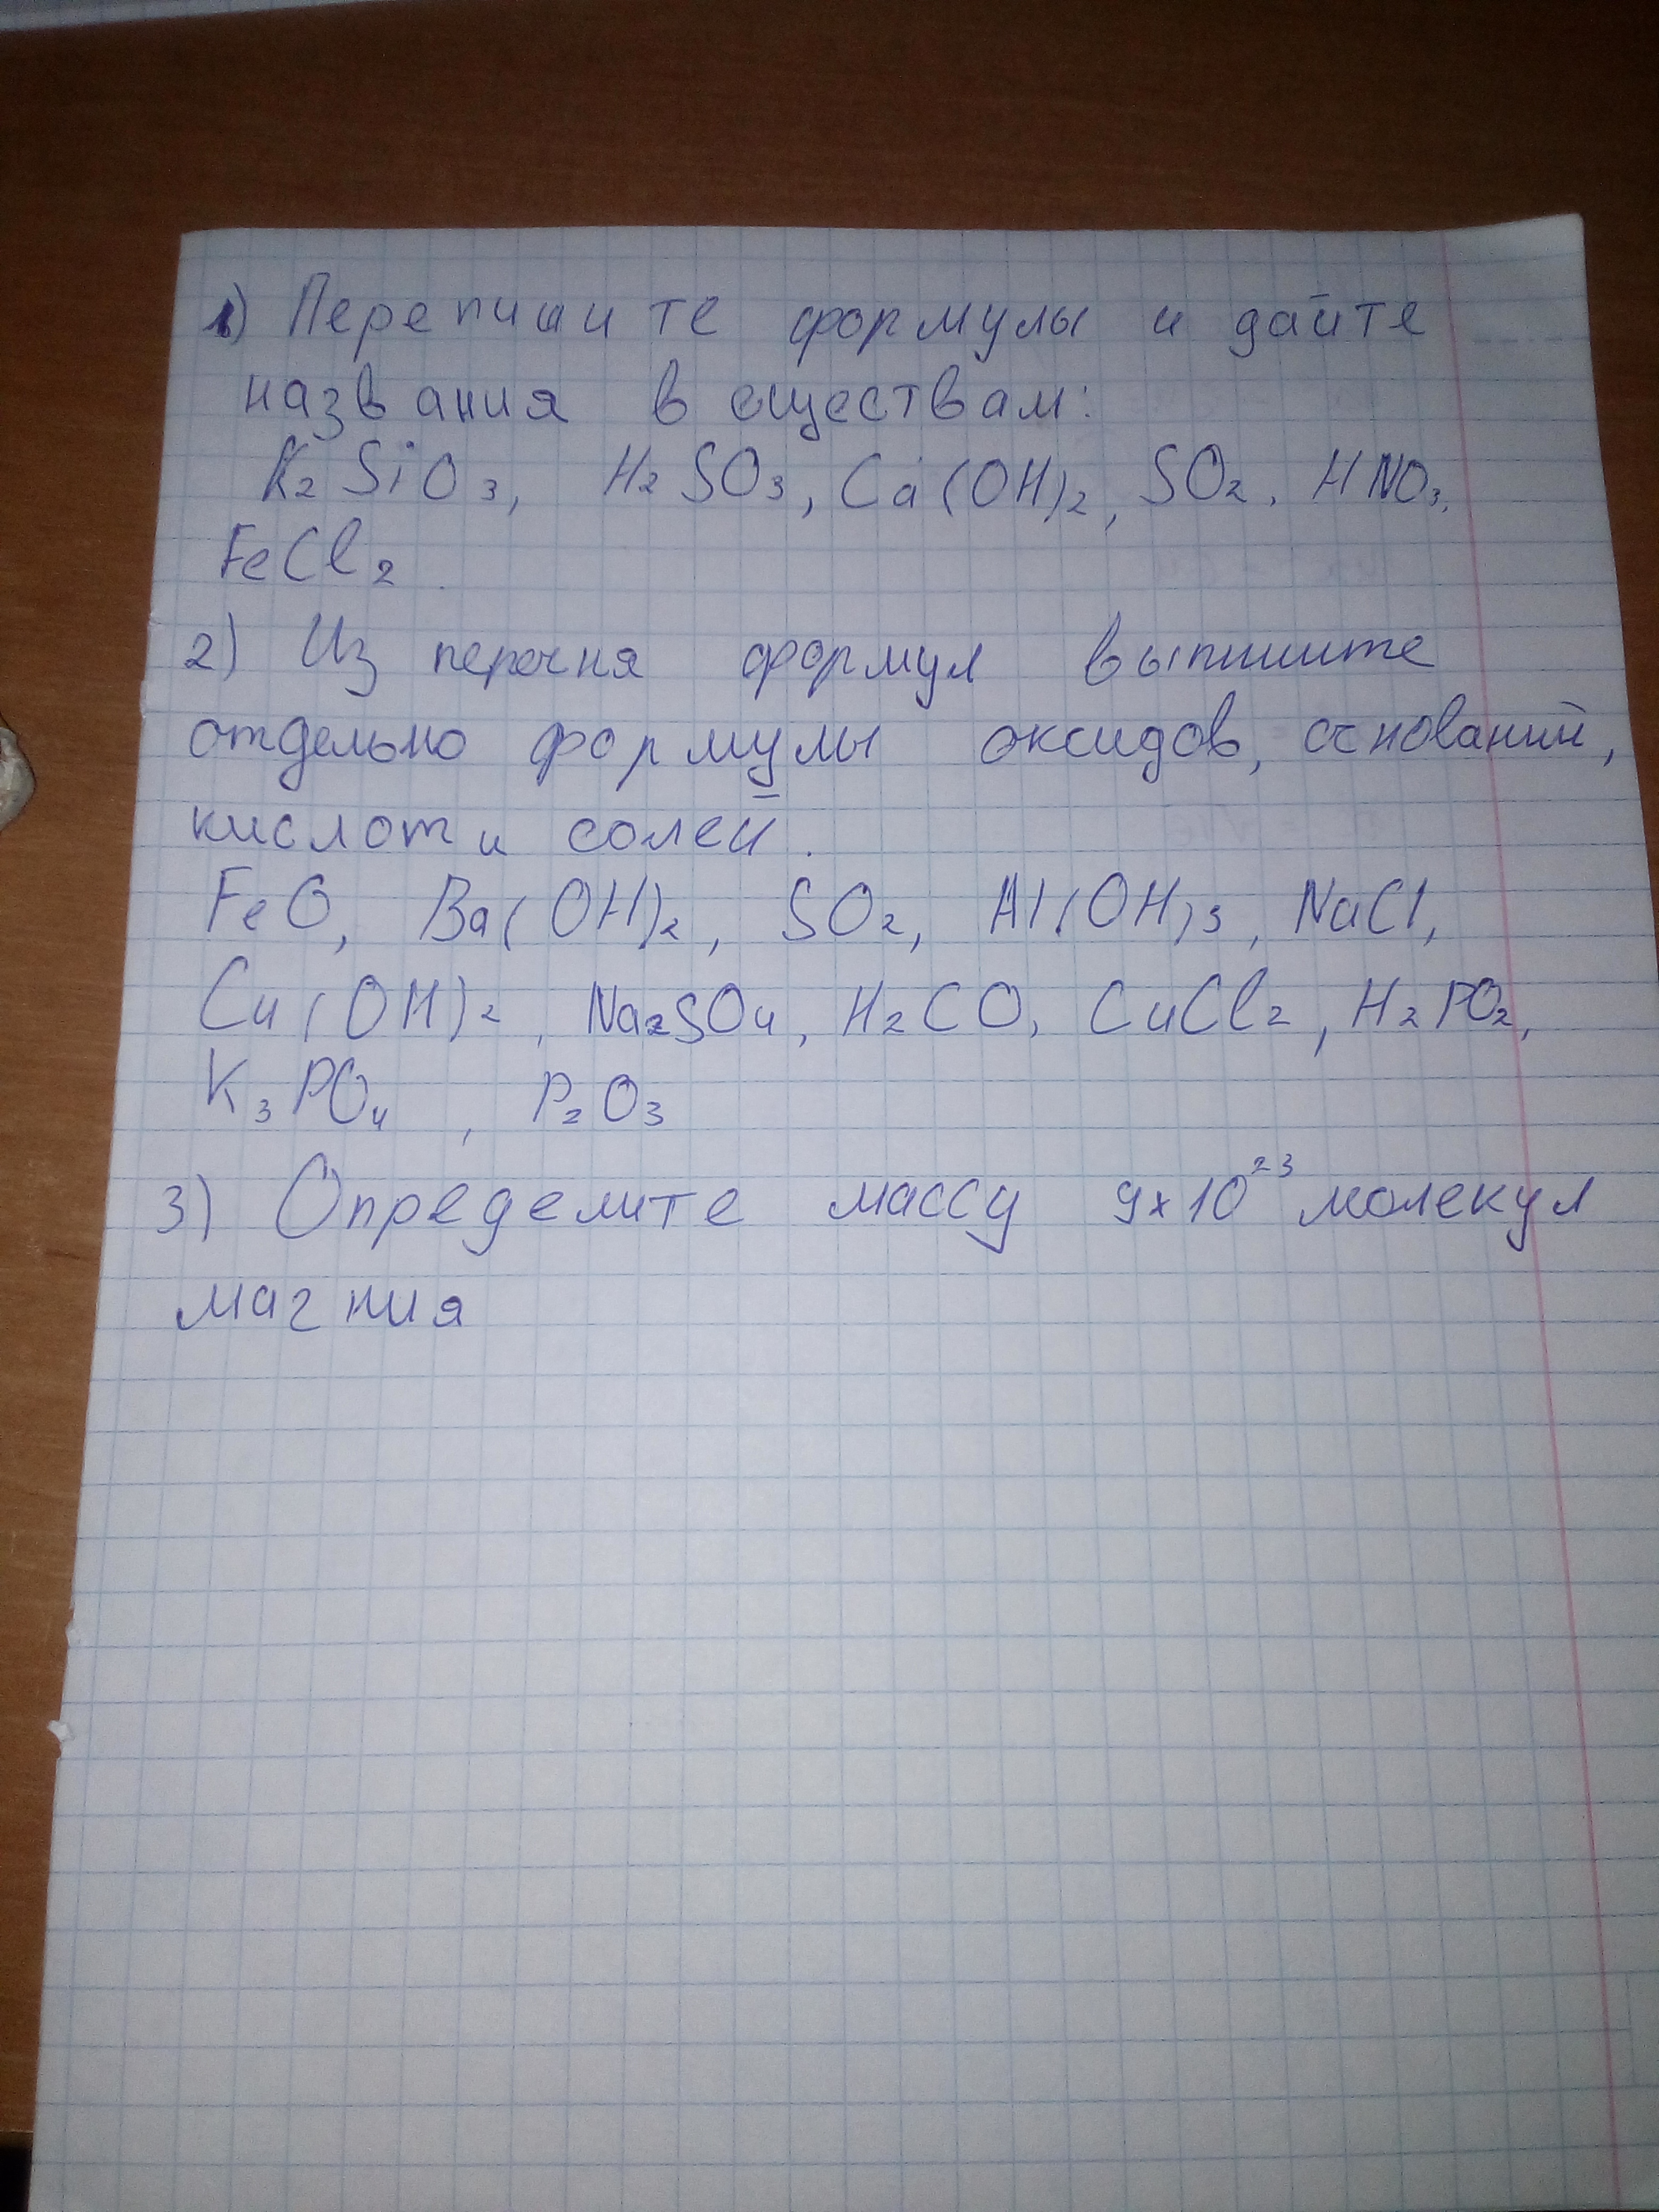 1) Перепишите формулы и дайте
названия веществам:
K₂SiO₃, H₂SO₃, Ca(OH)₂, SO₂, HNO₃,
FeCl₂.
2) Из перечня формул выпишите
отдельно формулы оксидов, оснований,
кислот и солей.
FeO, Ba(OH)₂, SO₂, Al(OH)₃, NaCl,
Cu(OH)₂, Na₂SO₄, H₂CO, CuCl₂, H₂PO₂,
K₃PO₄, P₂O₃
3) Определите массу 9×10²³ молекул
магния